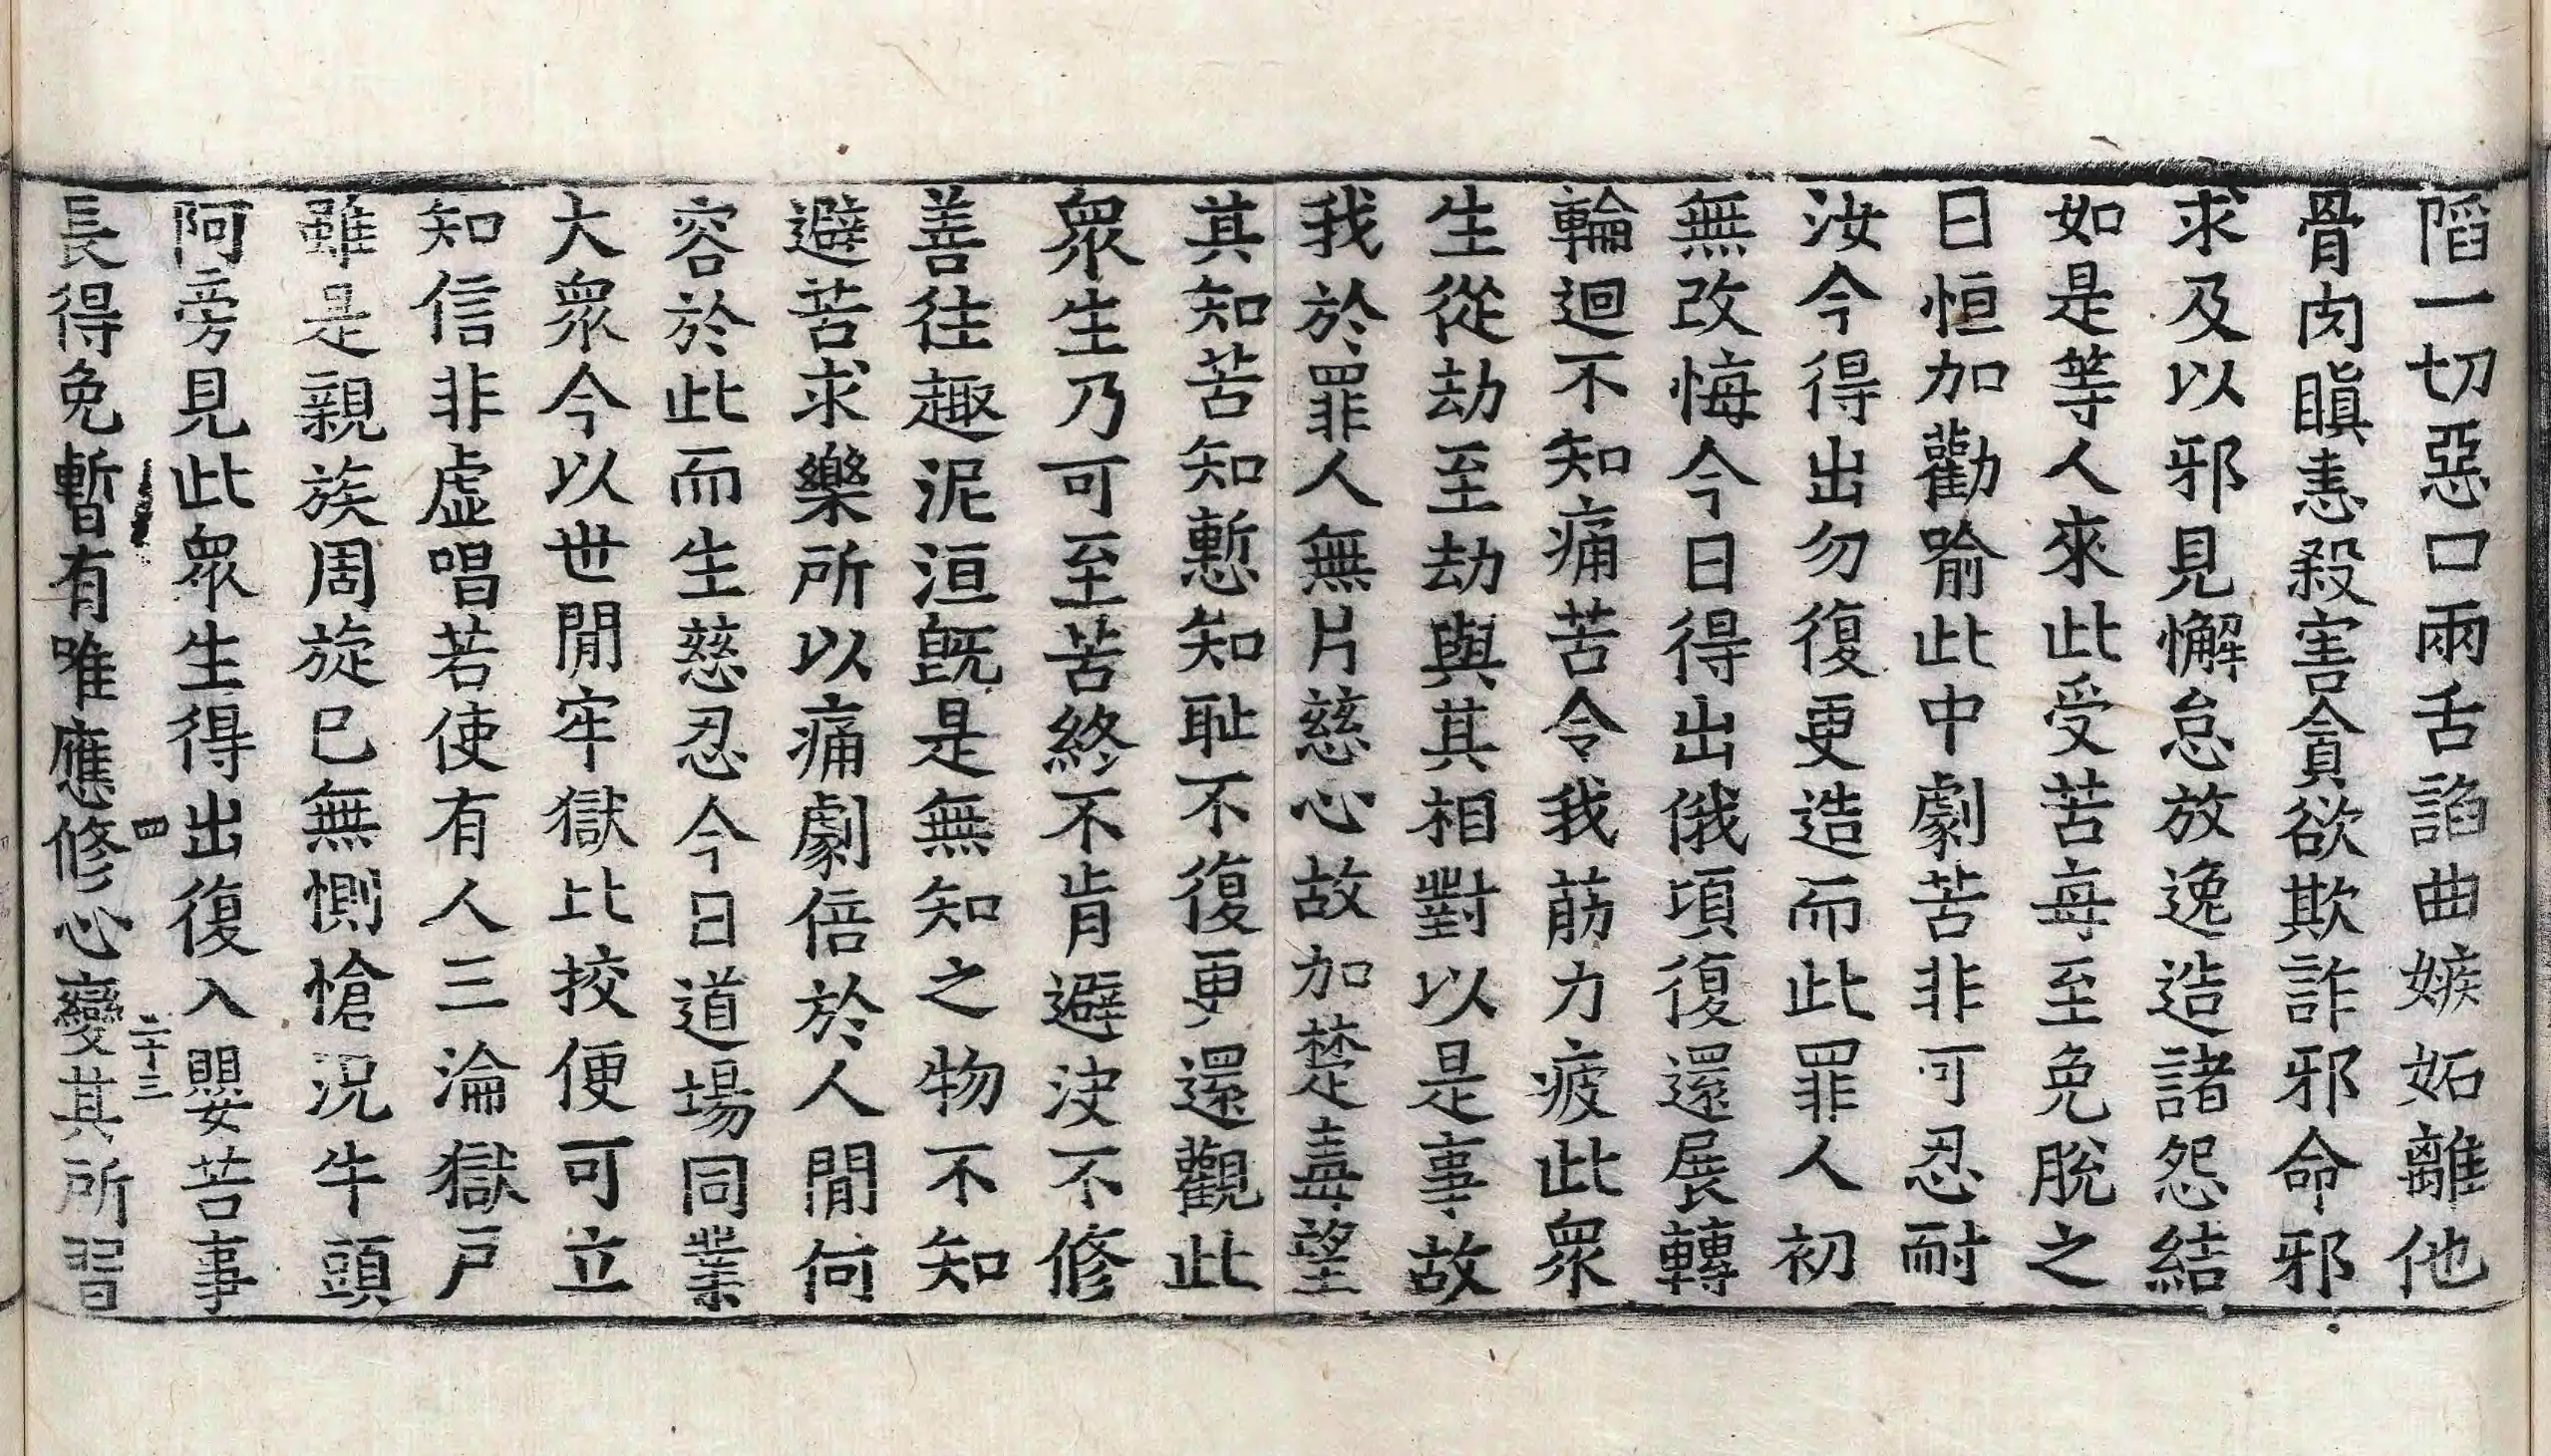 陷一切惡口兩舌諂曲嫉妬離他
骨肉瞋恚殺害貪欲欺詐邪命邪
求及以邪見懈怠放逸造諸怨結
如是等人來此受苦每至免脫之
日恒加勸喻此中劇苦非可忍耐
汝今得出勿復更造而此罪人初
無改悔今日得出俄頃復還展轉
輪迴不知痛苦令我荕力疲此衆
生從劫至劫與其相對以是事故
我於罪人無片慈心故加楚毒望
其知苦知慙知耻不復更還觀此
衆生乃可至苦終不肯避決不修
善往趣泥洹旣是無知之物不知
避苦求樂所以痛劇倍於人間何
容於此而生慈忍今日道場同業
大衆今以世間牢獄比挍便可立
知信非虛唱若使有人三淪獄戶
雖是親族周旋已無惻愴況牛頭
阿旁見此衆生得出復入嬰苦事
四 二十三
長得免暫有唯應修心變其所習